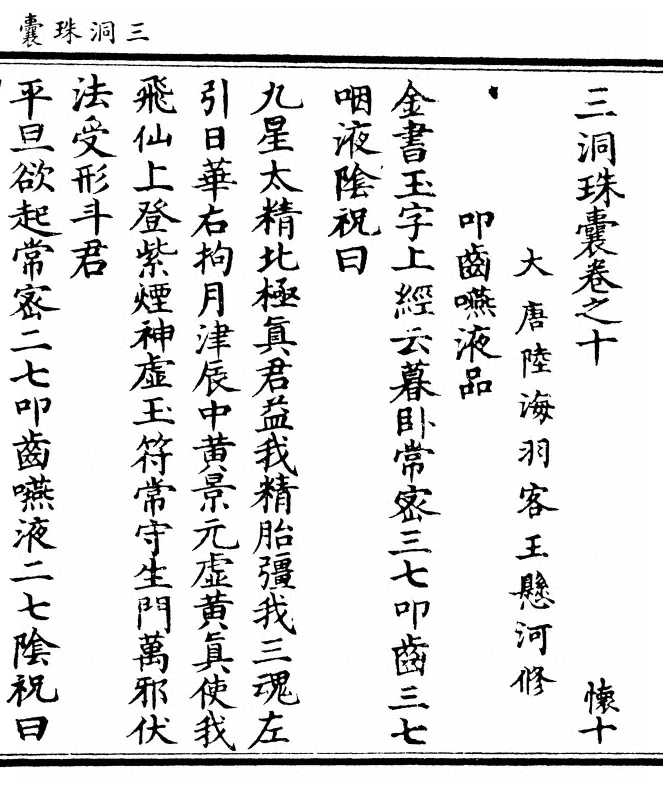 三洞珠囊
三洞珠囊卷之十 懷十
大唐陸海羽客王懸河修
叩齒嚥液品
金書玉字上經云暮卧常密三七叩齒三七
咽液陰祝曰
九星太精北極真君益我精胎彊我三魂左
引日華右拘月津辰中黃景元虛黃真使我
飛仙上登紫煙神虛玉符常守生門萬邪伏
法受形斗君
平旦欲起常密二七叩齒嚥液二七陰祝曰